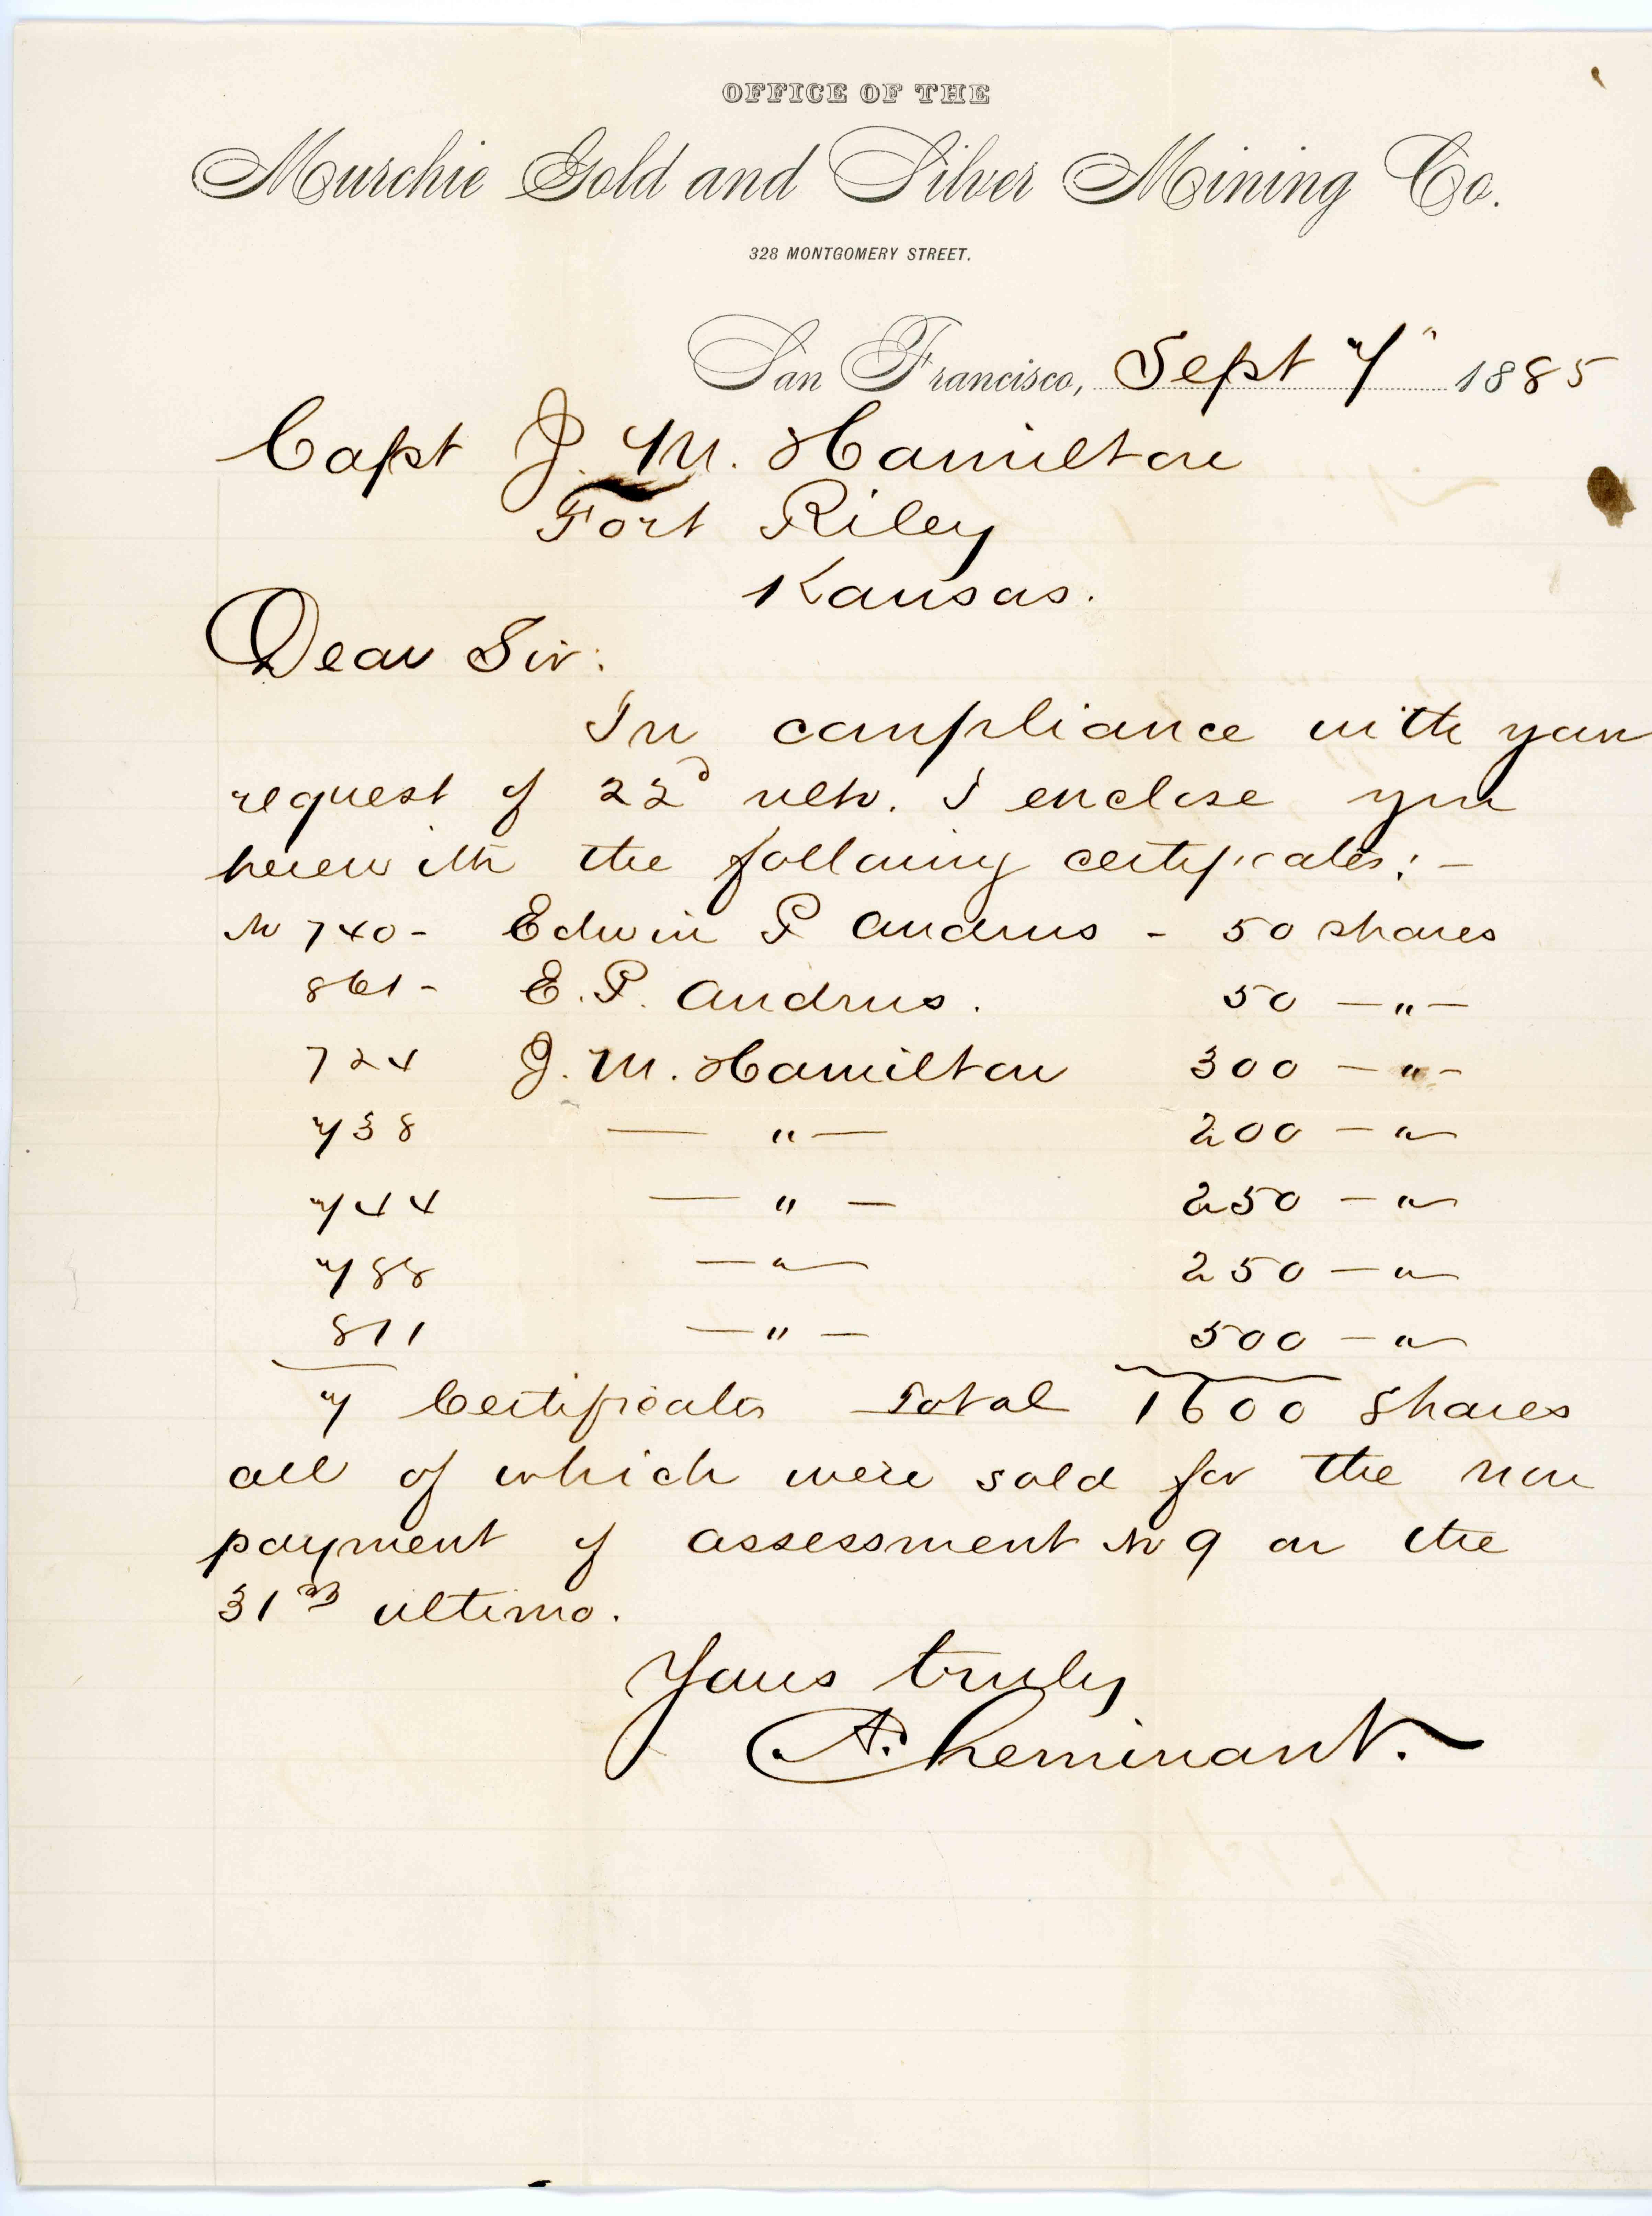 OFFICE OF THE
Murchie Gold and Silver Mining Co.
328 MONTGOMERY STREET.
San Francisco, Sept 7" 1885
Capt J. M. Hamilton
Fort Riley
Kansas.
Dear Sir:
In compliance with your
request of 22d ulto. I enclose you
herewith the following certificates: -
No 740 - Edwin P Andrus - 50 shares
861 - E. P. Andrus. 50 — " —
724 J. M. Hamilton 300 — " —
738 — " — 200 — "
744 — " — 250 — "
788 — " — 250 — "
811 — " — 500 — "
7 Certificates Total 1600 Shares
all of which were sold for the non
payment of assessment No 9 on the
31st ultimo.
Yours truly
A. Cheminant.